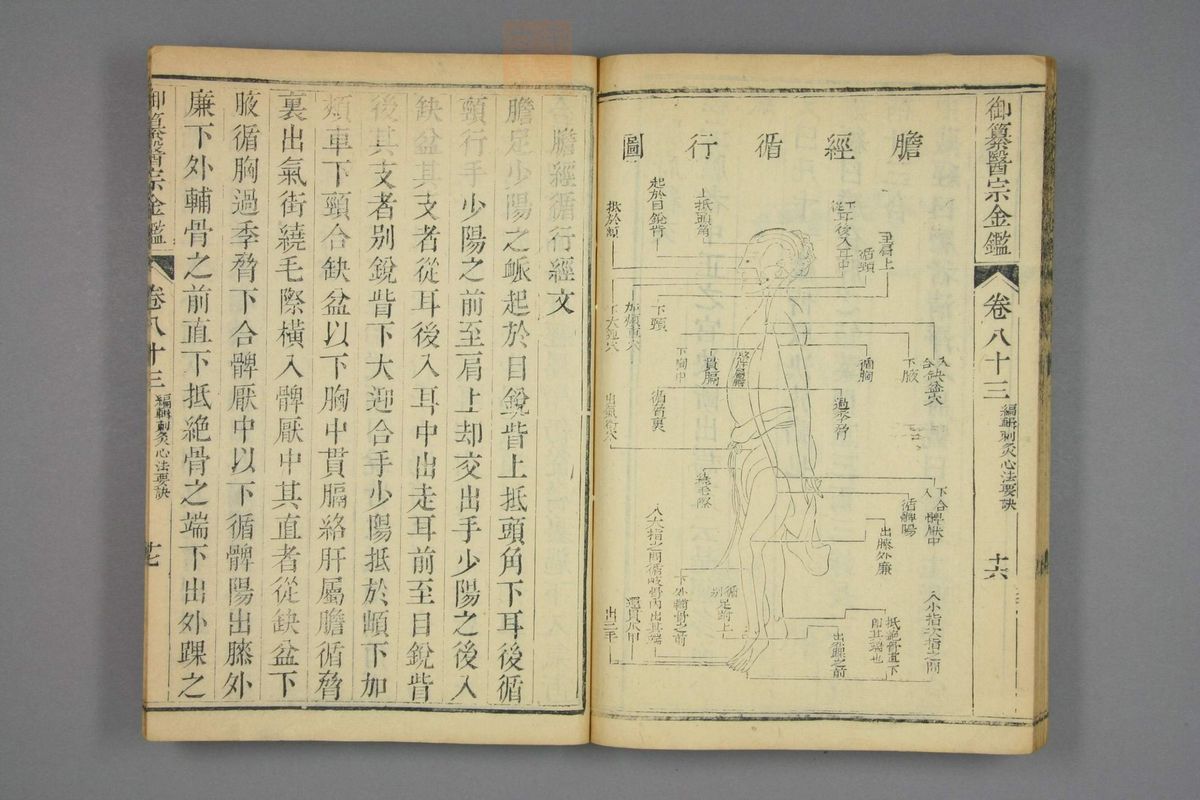 御纂醫宗金鑑
卷八十三
編輯刺灸心法要訣
十六
膽經循行圖
至肩上
循頸
從耳後入耳中
上抵頭角
起於目銳眥
抵於䪼
下頸
加頰車穴
下大迎穴
入缺盆穴
合
下腋
循胸
過季脅
貫膈
下胸中
循脅裏
出氣街穴
繞毛際
下合髀厭中
循髀陽
出膝外廉
下外輔骨之前
抵絕骨直下
即其端也
出外踝之前
循足跗上
別
入小指次指之間
入大指之間循岐骨內出其端
還貫爪甲
出三毛
膽經循行經文
膽足少陽之脈起於目銳眥上抵頭角下耳後循
頸行手少陽之前至肩上却交出手少陽之後入
缺盆其支者從耳後入耳中出走耳前至目銳眥
後其支者别銳眥下大迎合手少陽抵於䪼下加
頰車下頸合缺盆以下胸中貫膈絡肝屬膽循脅
裏出氣街繞毛際橫入髀厭中其直者從缺盆下
腋循胸過季脅下合髀厭中以下循髀陽出膝外
廉下外輔骨之前直下抵絕骨之端下出外踝之
御纂醫宗金鑑
卷八十三
編輯刺灸心法要訣
十七